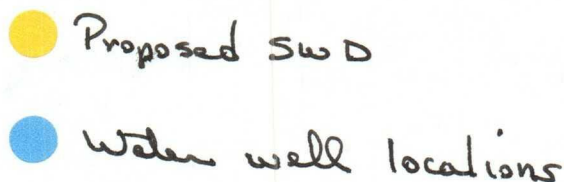 Proposed SWD
Water well locations